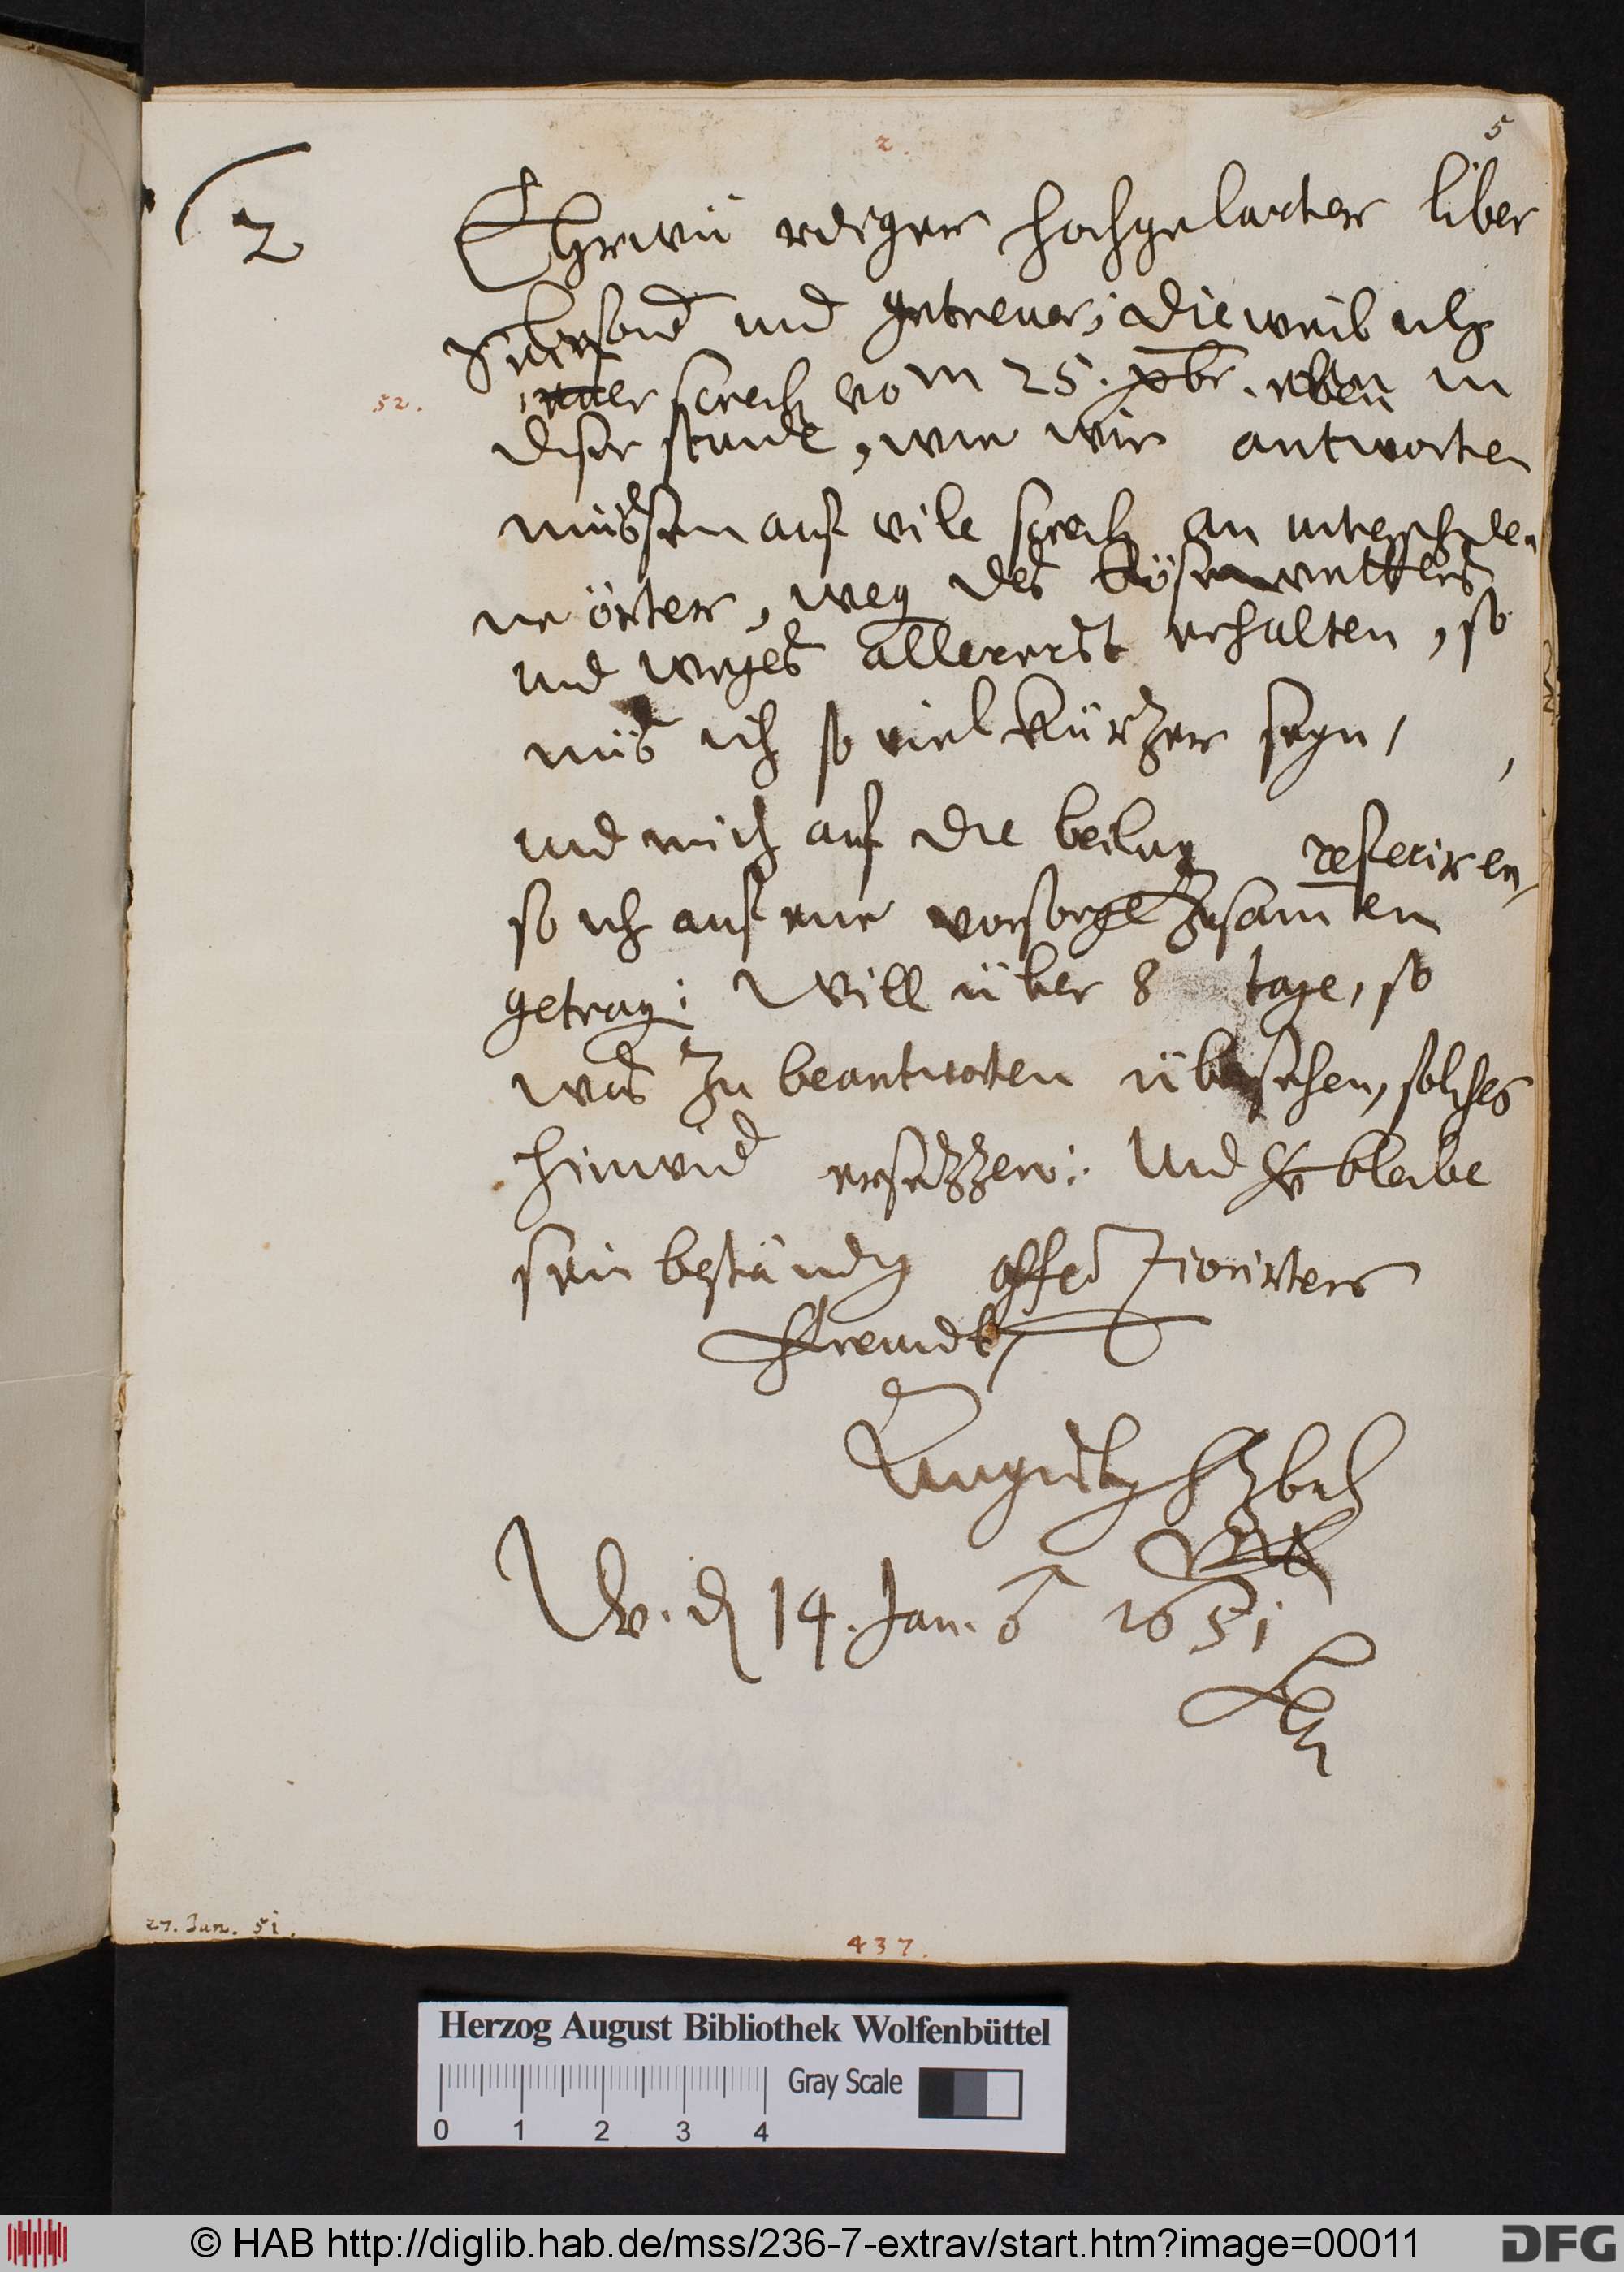 2.
5
2
Ehrwürdiger hochgelarter liber
besond und getreuer; Dieweil ich
Sein
52.
schreib vom 25. xbr. eben in
diser stunde, wie wir antworten
müssen auf vile schreib an unterschide
ne örter, weg des bösen wetters
und weges allererst erhalten, so
müs ich so viel kürtzer seyn,
und mich auf die beilag referiren,
so ich auf eine vorsorge zusamen
getrag: Will über 8 tage, so
was zu beantworten übersehen, solches
hinwid ersezzen: Und bleibe
sein beständig affectionirter
Freundt,
Augustus HzBuL
W. d 14. Jan. 1651
27. Jan. 51.
437.
Herzog August Bibliothek Wolfenbüttel
Gray Scale
0 1 2 3 4
© HAB http://diglib.hab.de/mss/236-7-extrav/start.htm?image=00011
DFG